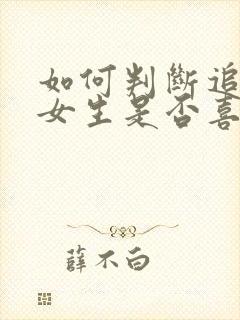 如何判断追
女生是否喜
薛不白